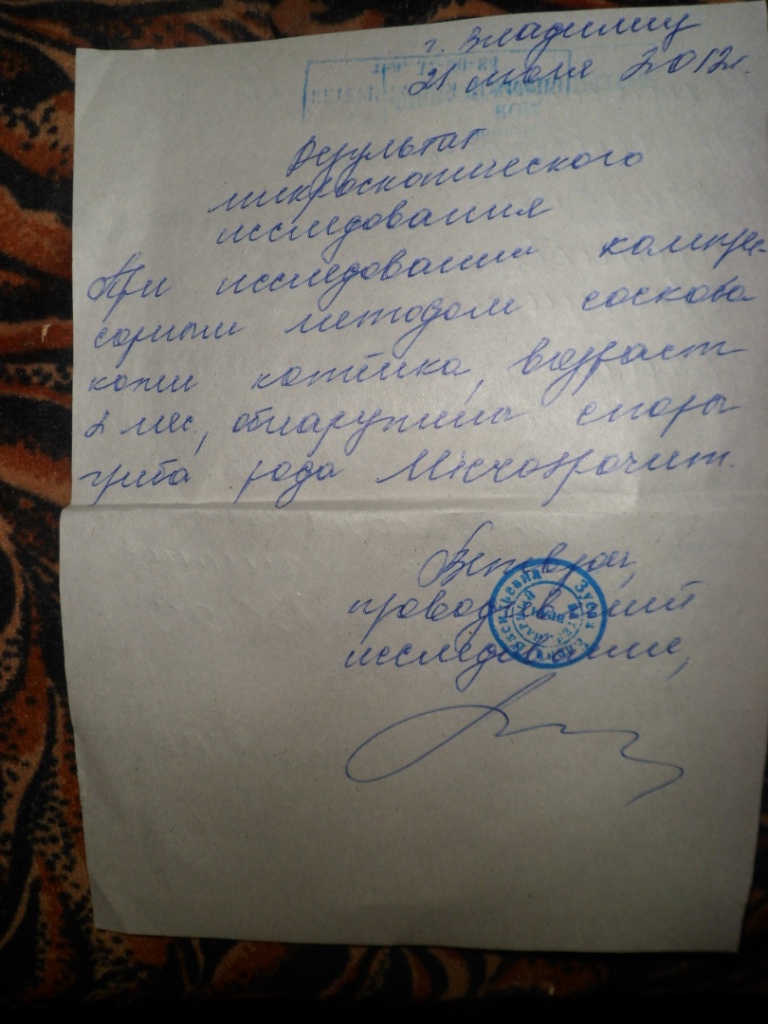 г. Владимир
21 июля 2012г.
Результат
микроскопического
исследования
При исследовании компрес-
сорным методом соскоба
кожи котика, возраст
2 мес., обнаружены споры
гриба рода Microsporum.
Ветврач,
проводивший
исследование,
Зуева Васильевна